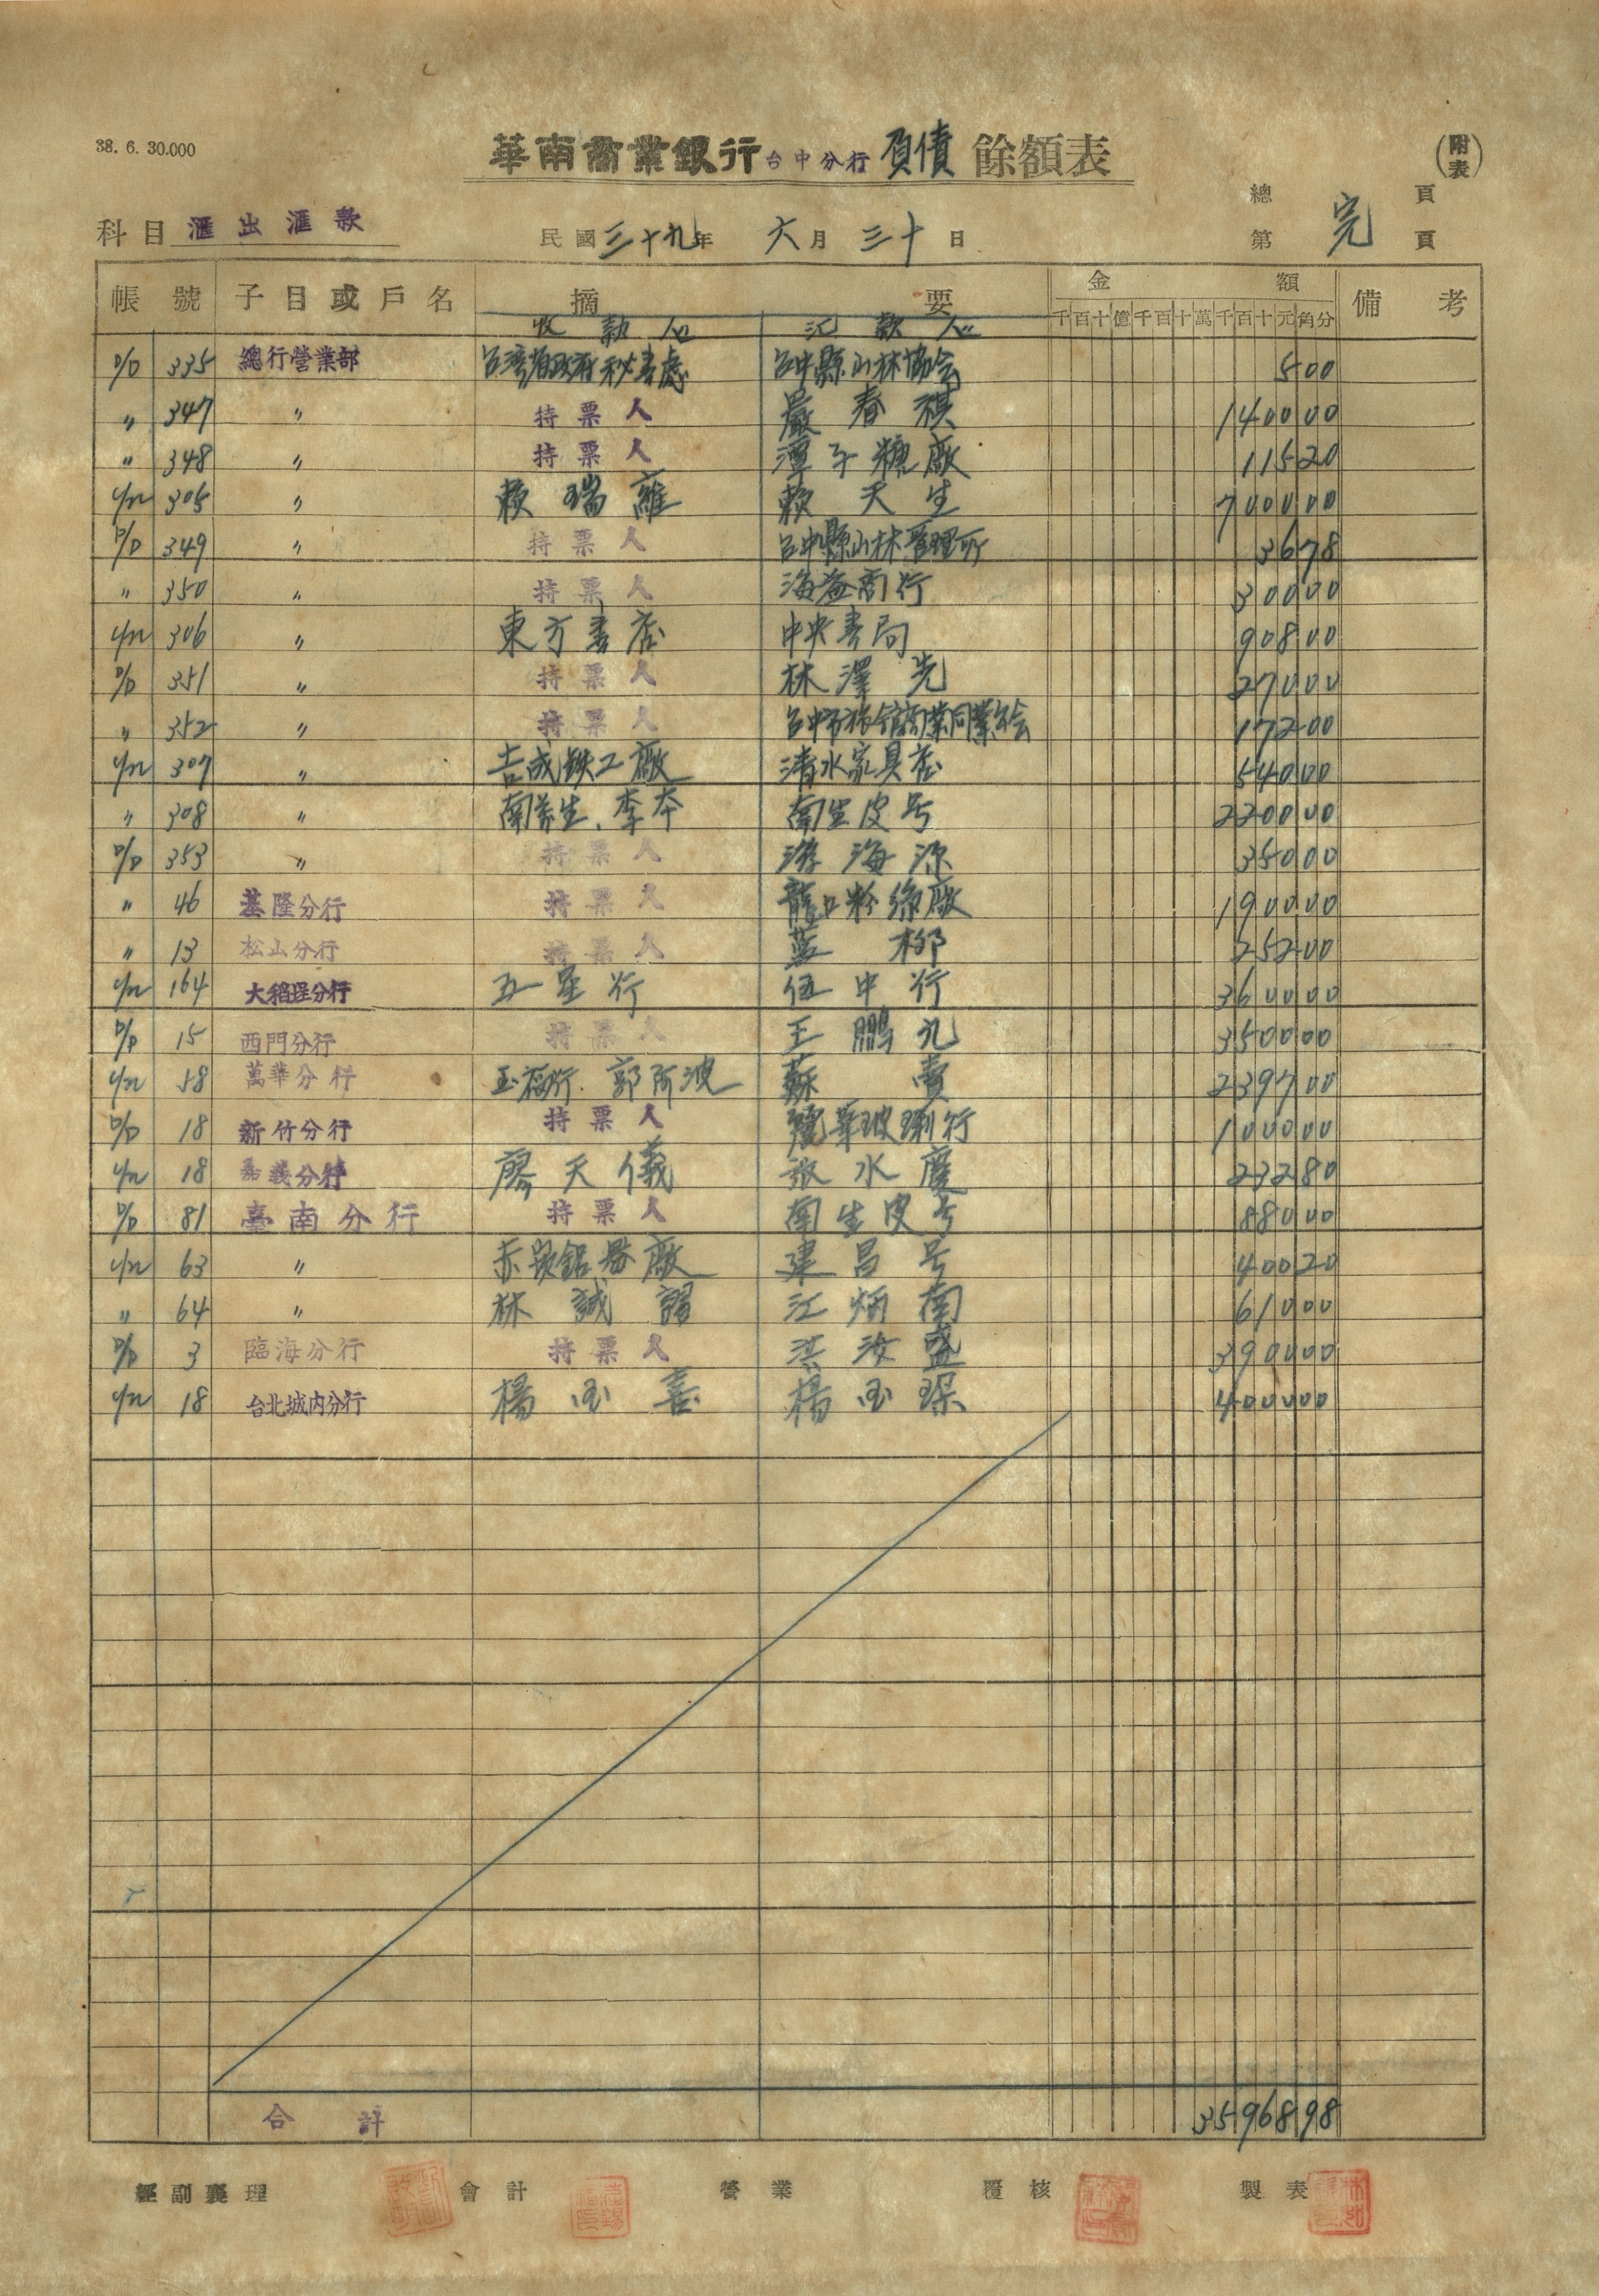 38. 6. 30.000
華南商業銀行台中分行 負債 餘額表
(附表)
總 頁
科目 滙出滙款 民國三十九年 六月三十日 第 完 頁
帳號 子目或戶名 摘要 金額 備考
收款人 滙款人 千百十億千百十萬千百十元角分
D/D 335 總行營業部 台湾省政府秘書處 台中縣山林協会 500
〃 347 〃 持票人 嚴春祺 140000
〃 348 〃 持票人 潭子糖廠 11520
305 〃 賴瑞蘿 賴天生 700000
D/D 349 〃 持票人 台中縣山林管理所 3678
〃 350 〃 持票人 海益商行 30000
306 〃 東方書店 中央書局 90800
D/D 351 〃 持票人 林澤光 27000
〃 352 〃 持票人 台中市旅館商業同業公会 17200
307 〃 吉成鉄工廠 清水家具店 54000
〃 308 〃 南養生、李本 南生皮号 220000
D/D 353 〃 持票人 游海源 35000
〃 46 基隆分行 持票人 龍口粉絲廠 190000
〃 13 松山分行 持票人 藍柳 25200
164 大稻埕分行 五星行 伍中行 360000
D/D 15 西門分行 持票人 王鵬九 350000
58 萬華分行 玉福行、郭阿波 蘇賣 239700
D/D 18 新竹分行 持票人 麗華玻璃行 100000
18 嘉義分行 廖天儀 張水慶 23280
D/D 81 臺南分行 持票人 南生皮号 88000
63 〃 赤崁鋁器廠 建昌号 40020
〃 64 〃 林誠 江炳南 61000
D/D 3 臨海分行 持票人 洪汝盛 390000
18 台北城内分行 楊喜 楊琛 400000
合計 3596898
經副襄理 會計 營業 覆核 製表